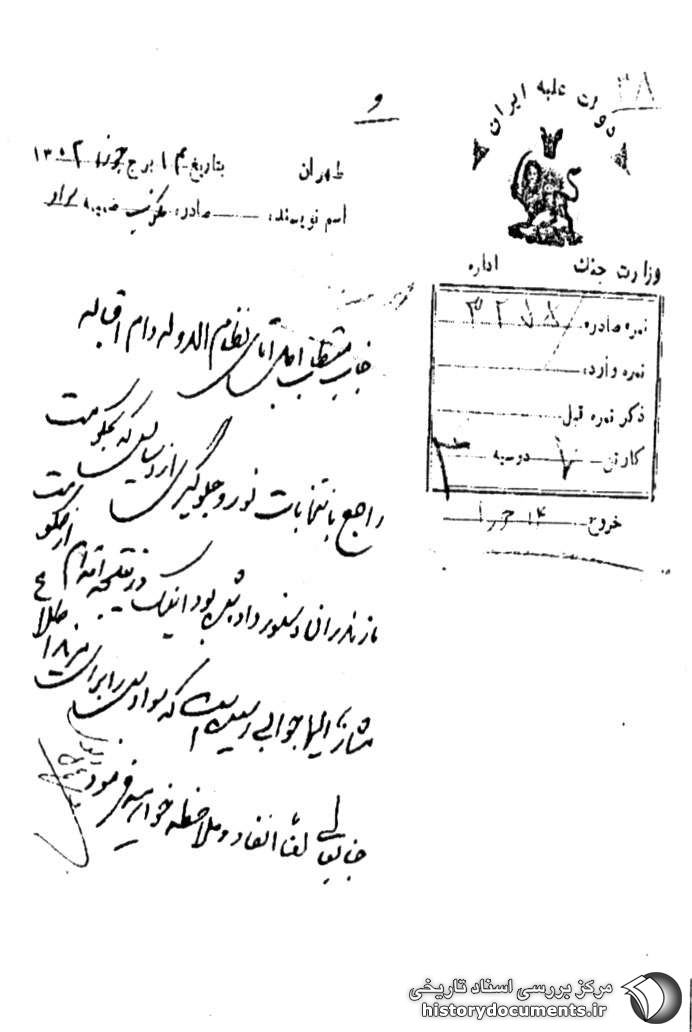 ۳۸
دولت علیه ایران
و
طهران بتاریخ ۱۴ برج جوزا ۱۳۰۲
اسم نویسنده صادره مرکز ضمیمه
وزارت جنگ اداره
نمره صادره ۳۲۷۸
نمره وارده
ذکر نمره قبل
کارتن ۷ دوسیه ۲
خروج ۱۴ جوزا
جناب مستطاب اجل آقای نظام الدوله دام اقباله
راجع بانتخابات نور و جلوگیری از دسایس که بحکومت
مازندران دستور داده شده بود اینک در نتیجه اقدام از حکومت
مشارالیها جوابی رسیده است که سواد آن را برای مزید اطلاع
جنابعالی لفاً انفاد و ملاحظه خواهید فرمود
مرکز بررسی اسناد تاریخی
historydocuments.ir